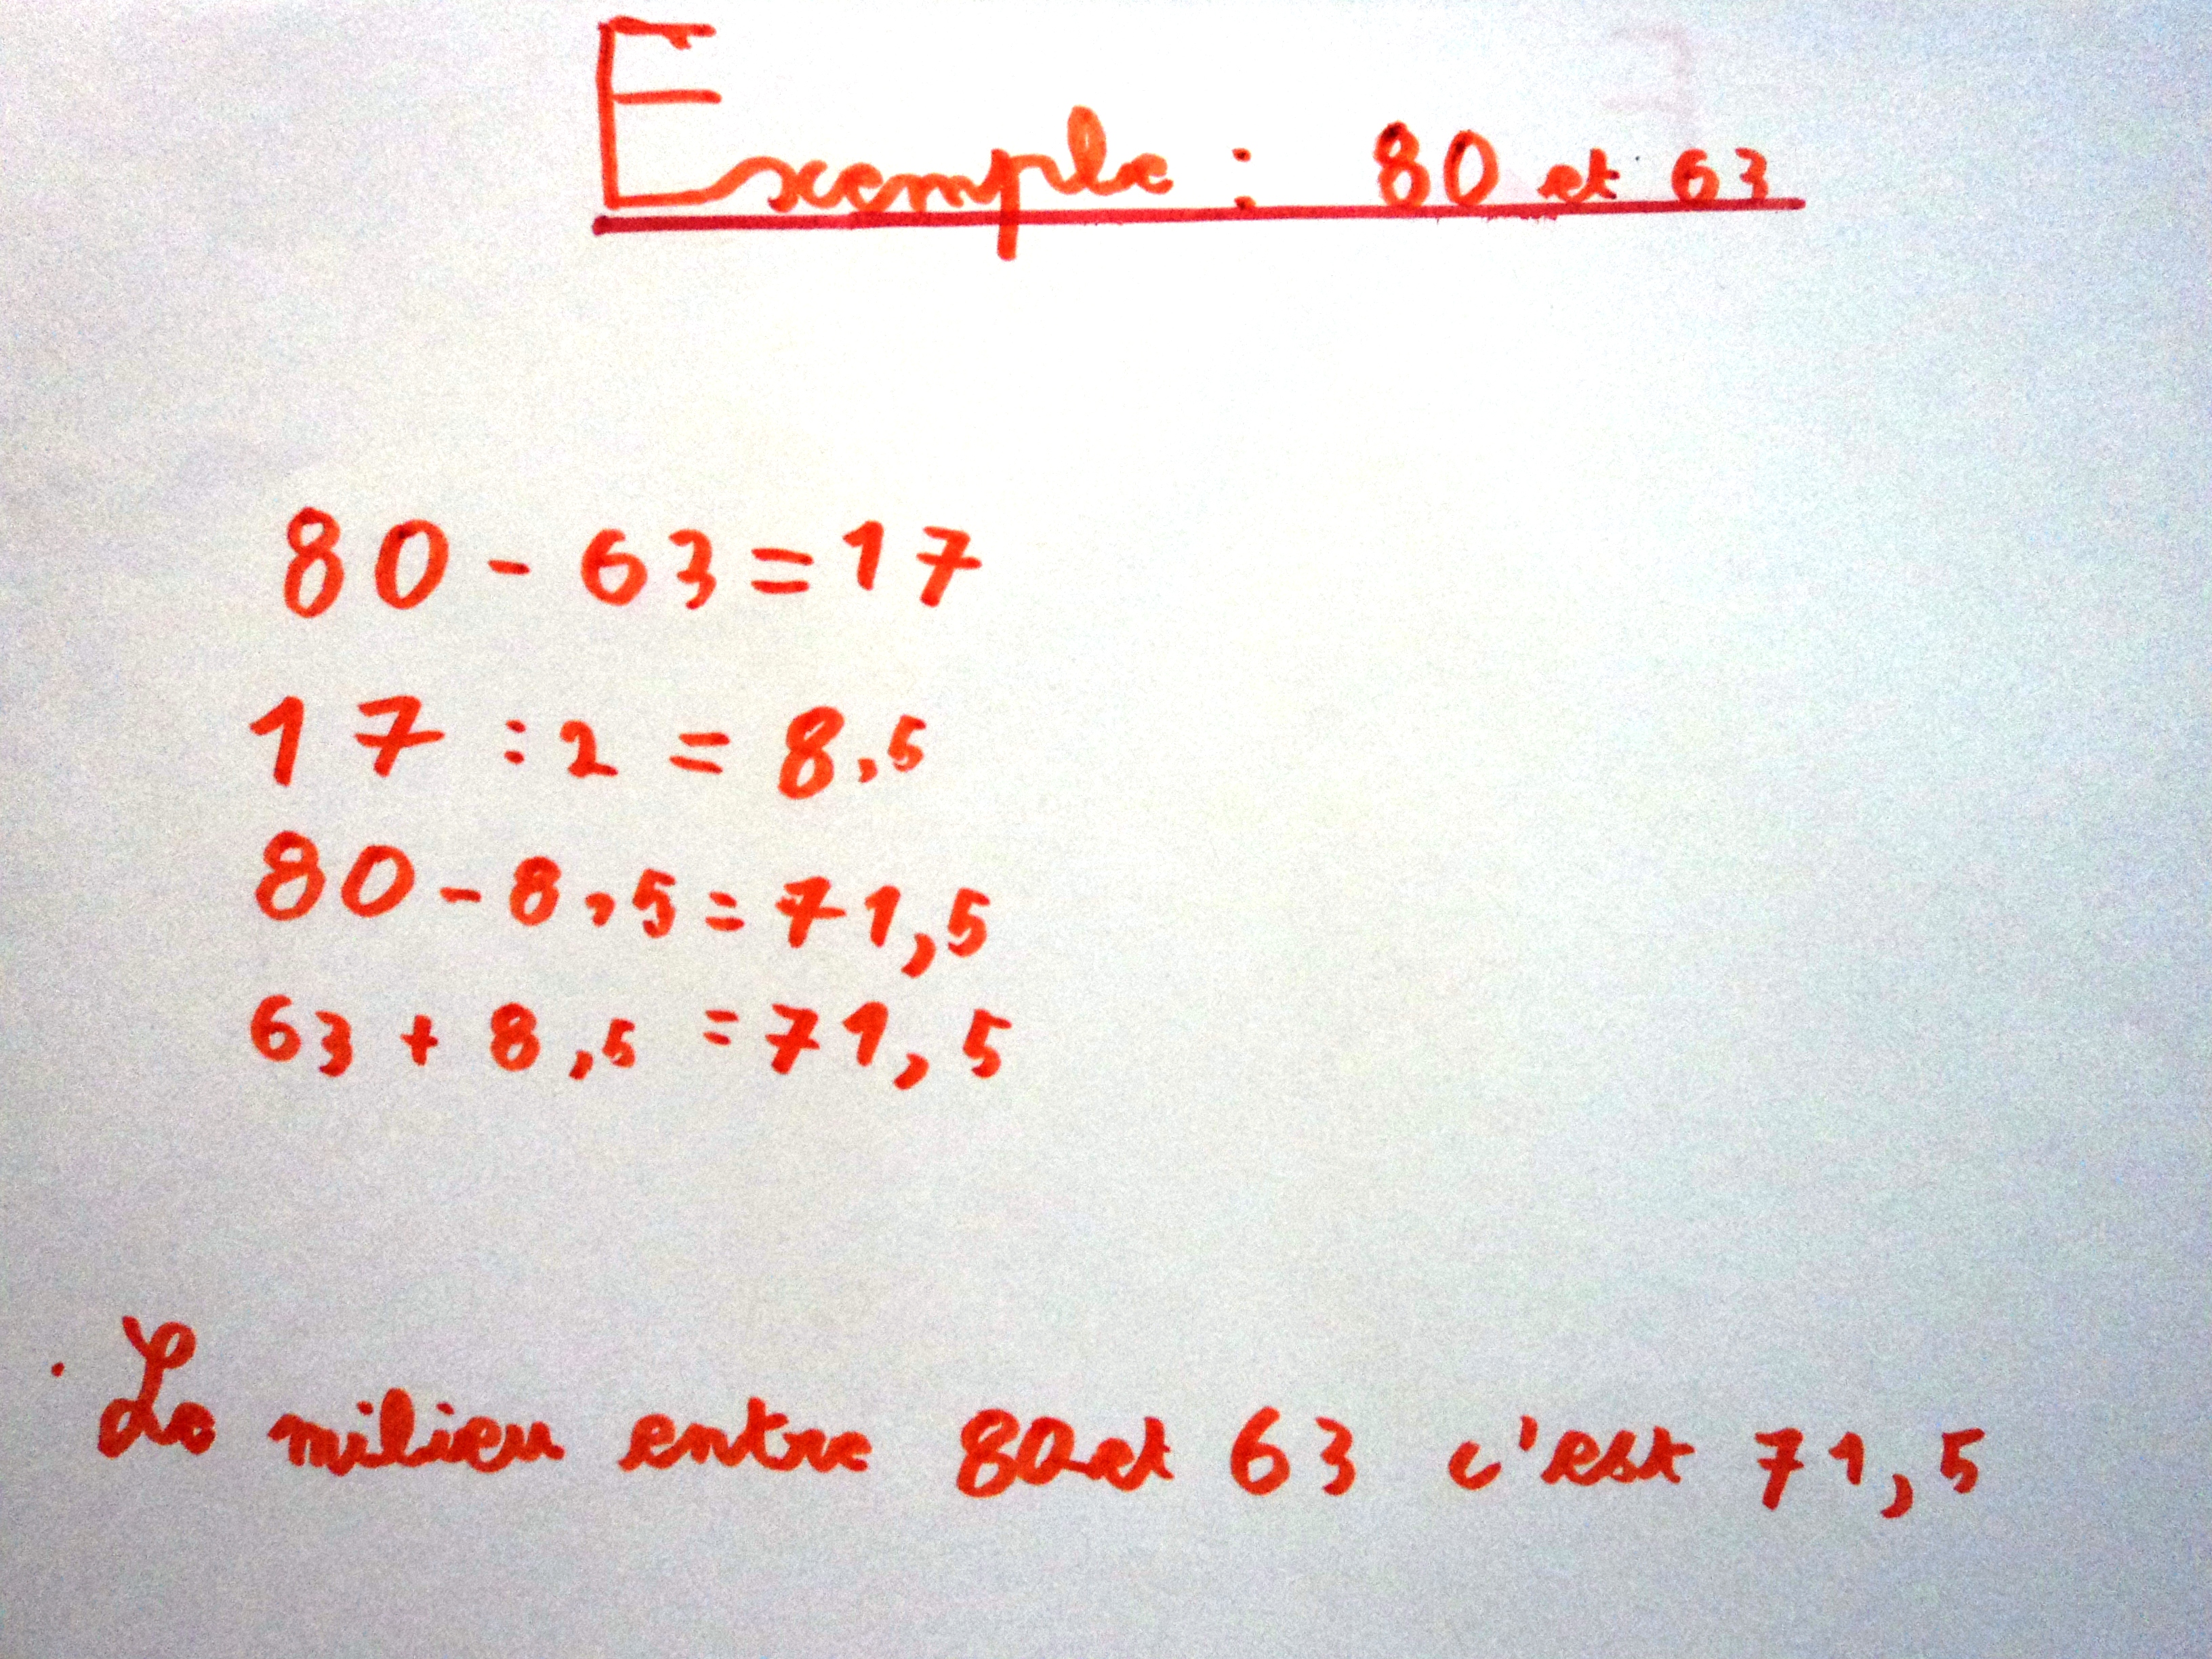 Exemple : 80 et 63
80 - 63 = 17
17 : 2 = 8,5
80 - 8,5 = 71,5
63 + 8,5 = 71,5
Le milieu entre 80 et 63 c'est 71,5